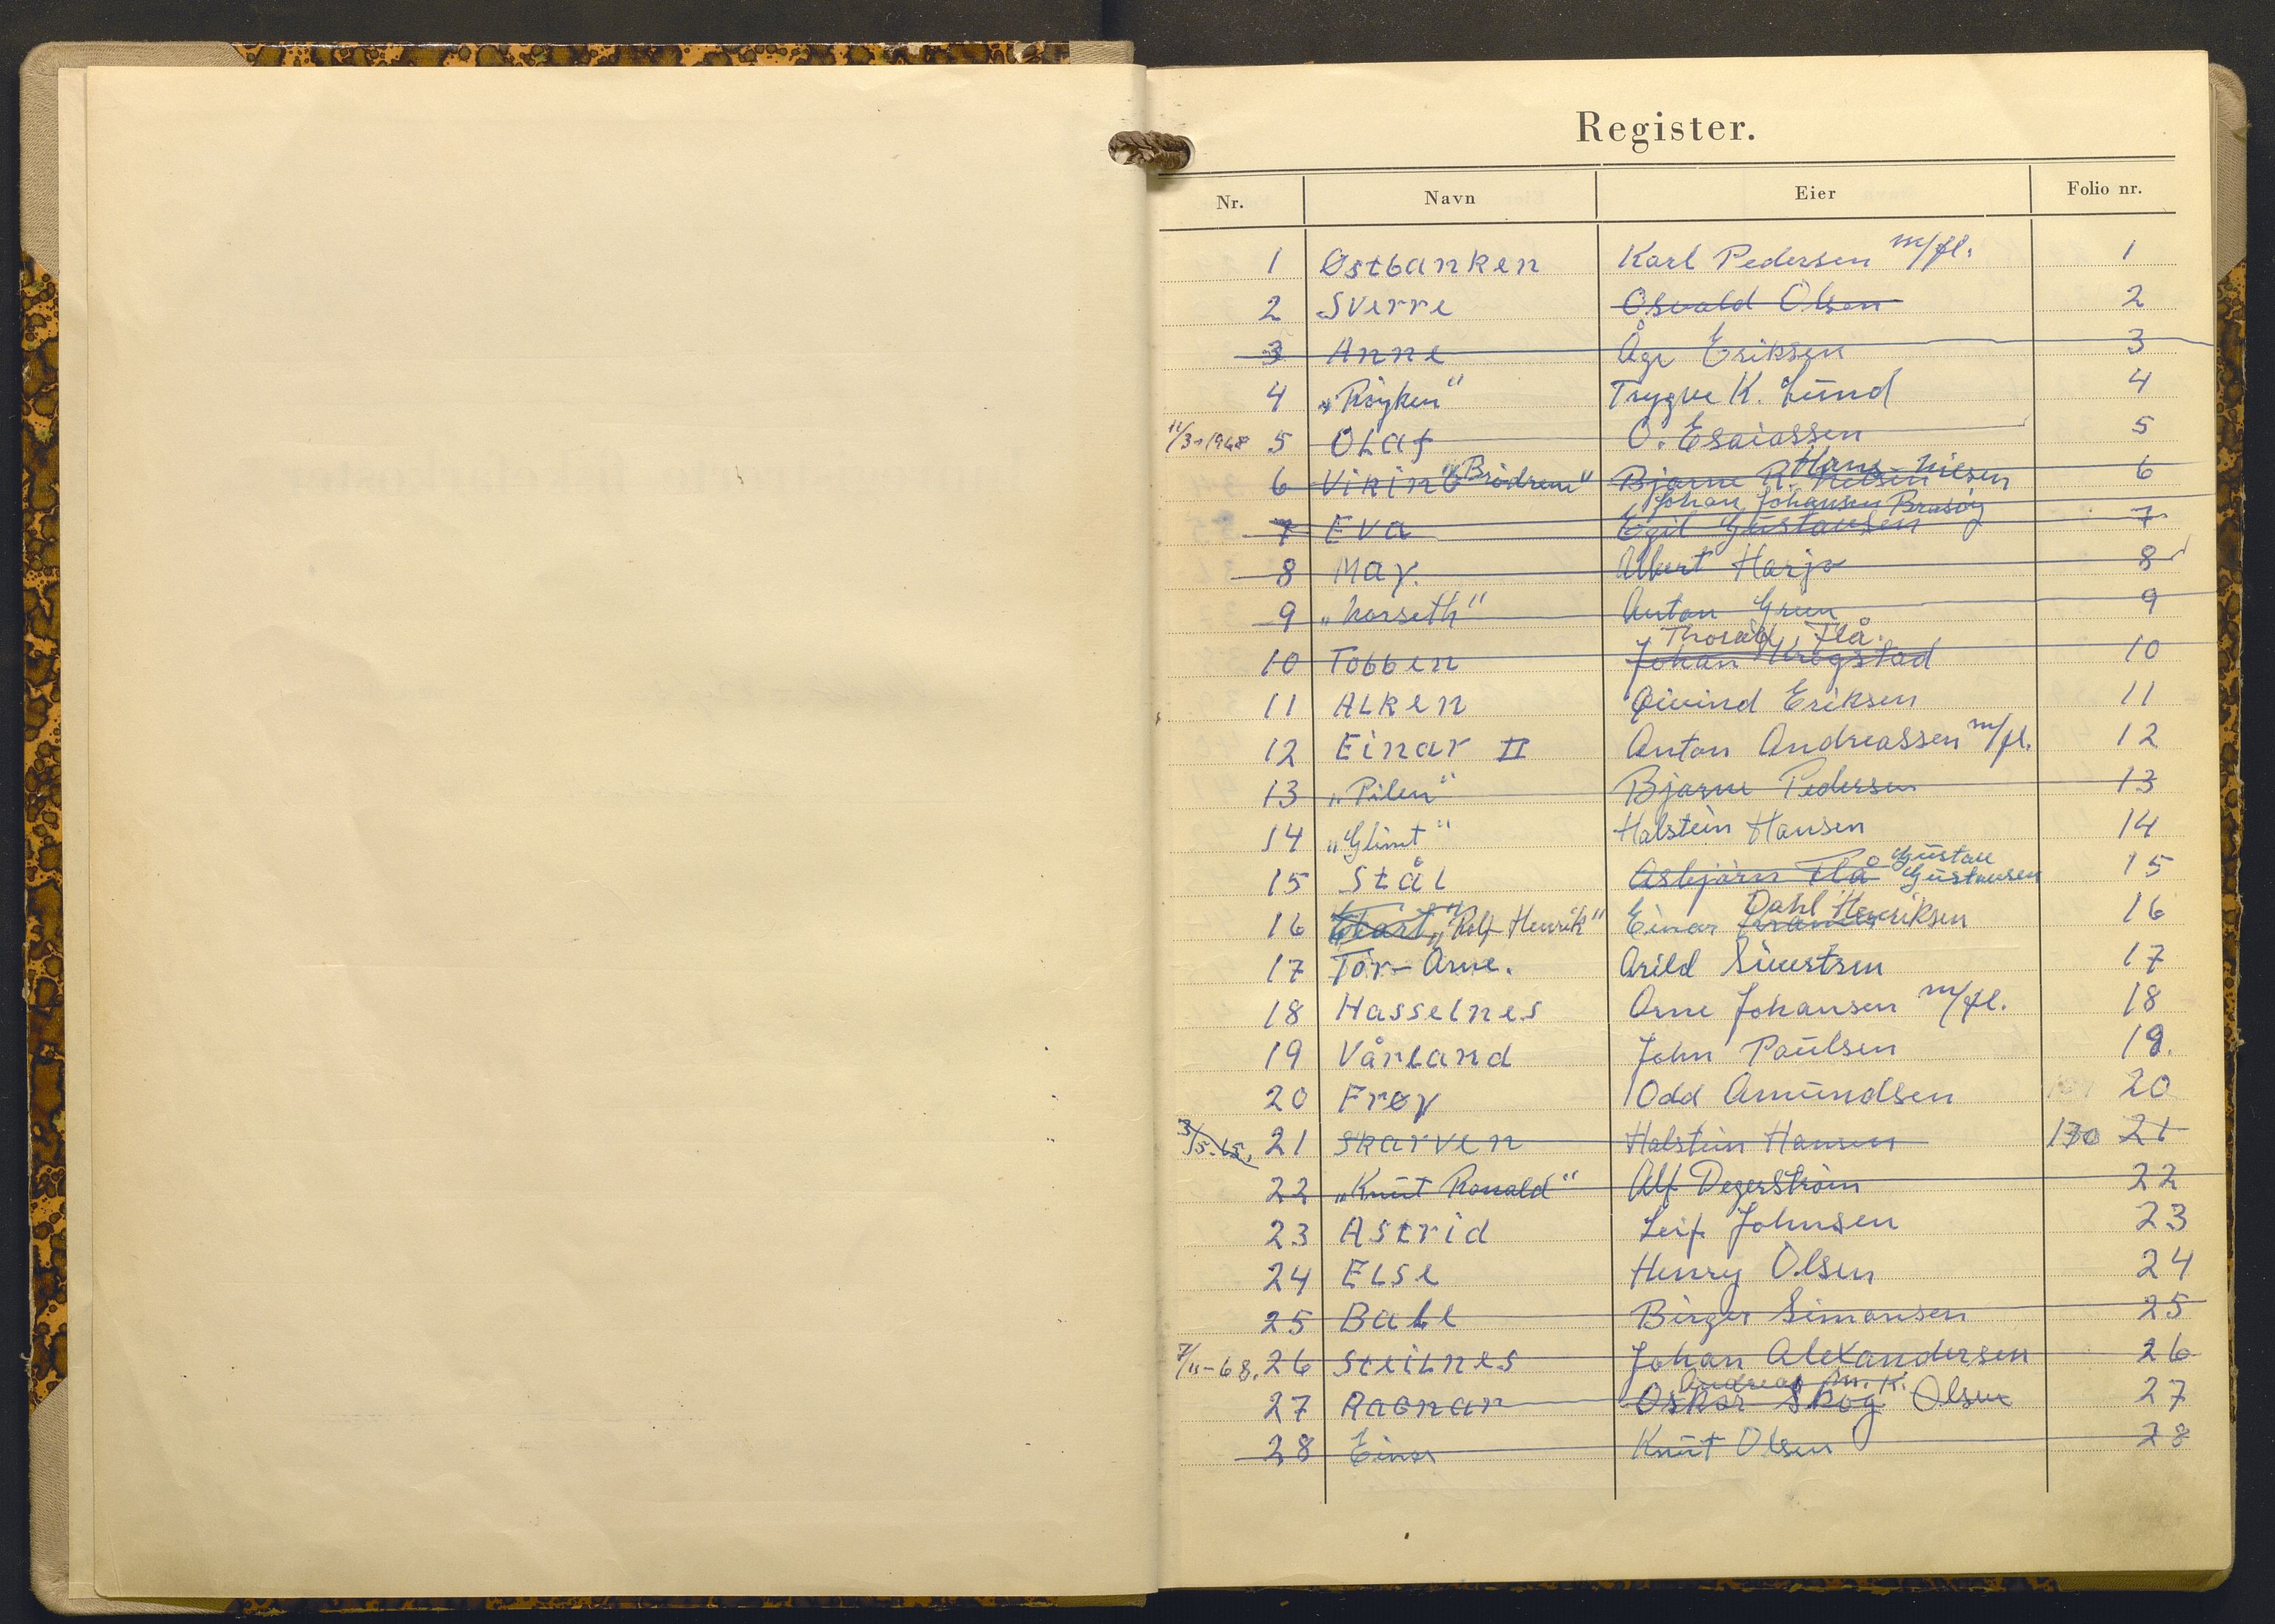 Register.
Nr. Navn Eier Folio nr.
1 Østbanken Karl Pedersen m/fl. 1
2 Sverre Osvald Olsen 2
3 Anne Åge Eriksen 3
4 „Röyken" Trygve K. Lund 4
11/3-1968 5 Olaf O. Esaiassen 5
Hans Nilsen
6 Viking „Brödrene" Bjarne R. Nilsen 6
Johan Johansen Brasöy
7 Eva Egil Gustavsen 7
8 May. Albert Harjo 8
9 „Korseth" Anton Green 9
Thorolf Flå.
10 Tobben Johan Krogstad 10
11 Alken Øivind Eriksen 11
12 Einar II Anton Andreassen m/fl. 12
13 „Pilen" Bjarne Pedersen 13
14 „Glimt" Halstein Hansen 14
Gustav
15 Stål Asbjörn Flå Gustavsen 15
Dahl
16 „Rolf Henrik" Einar Henriksen 16
17 Tor-Arne. Arild Sivertsen 17
18 Hasselnes Arne Johansen m/fl. 18
19 Vårland John Paulsen 19.
20 Frøy Odd Amundsen 20
3/5.65. 21 Skarven Halstein Hansen 130 21
22 „Knut Ronald" Alf Degerström 22
23 Astrid Leif Johnsen 23
24 Else Henry Olsen 24
25 Babe Birger Simonsen 25
7/11-68. 26 Steilnes Johan Alexandersen 26
Andreas M. K.
27 Ragnar Oskar Skog Olsen 27
28 Einar Knut Olsen 28